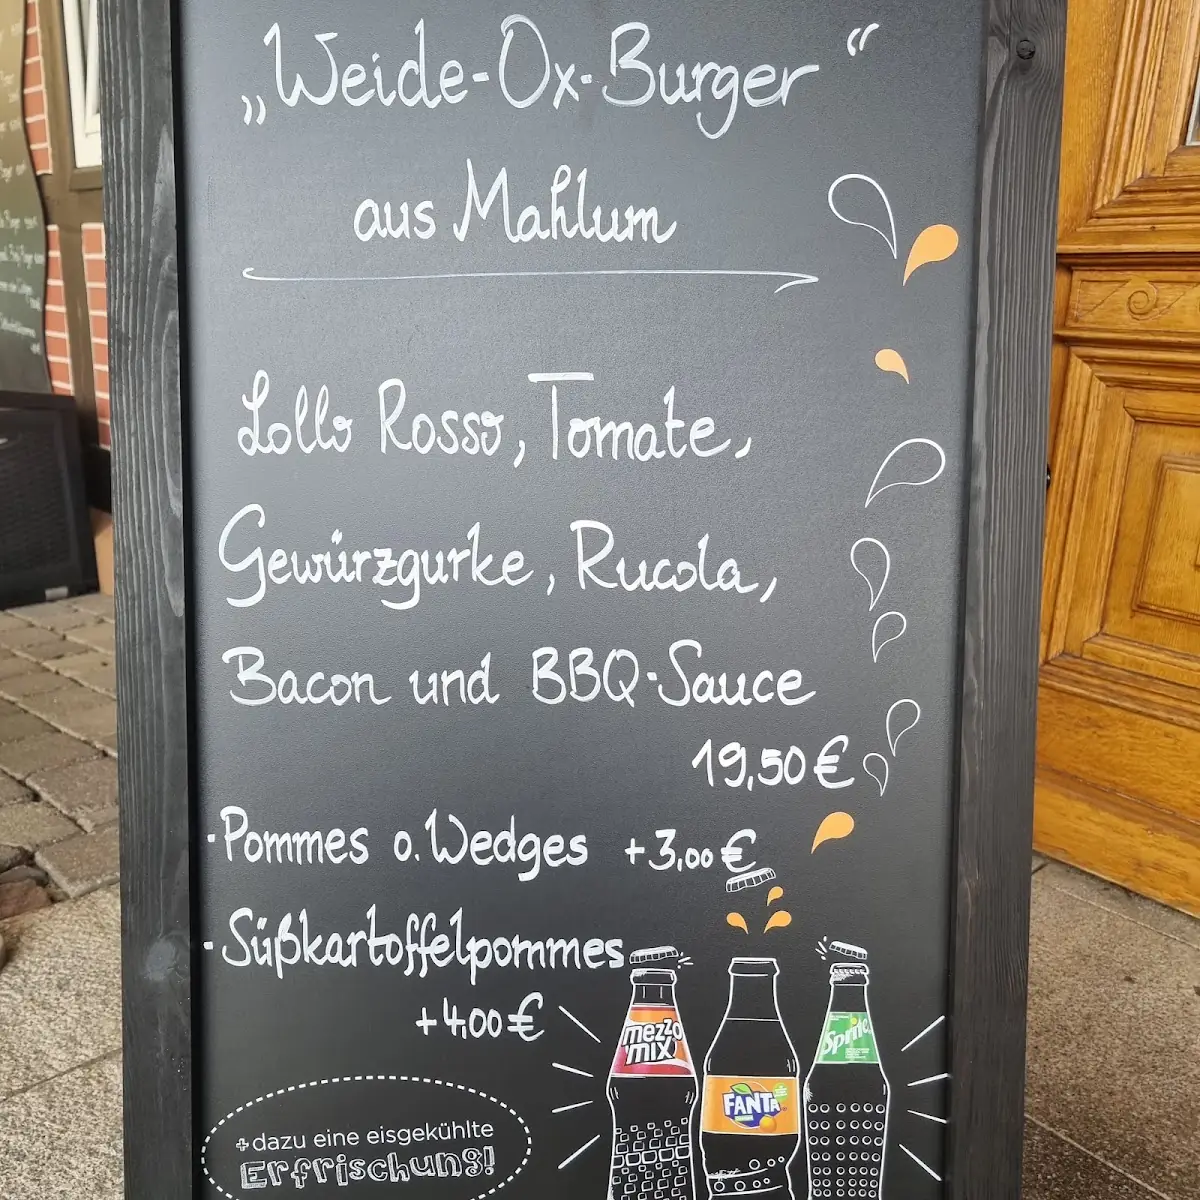 „Weide-Ox-Burger“
aus Mahlum
Lollo Rosso, Tomate,
Gewürzgurke, Rucola,
Bacon und BBQ-Sauce
19,50 €
·Pommes o. Wedges +3,00 €
·Süßkartoffelpommes
+4,00 €
mezzo
mix
FANTA
Sprite
+ dazu eine eisgekühlte
Erfrischung!